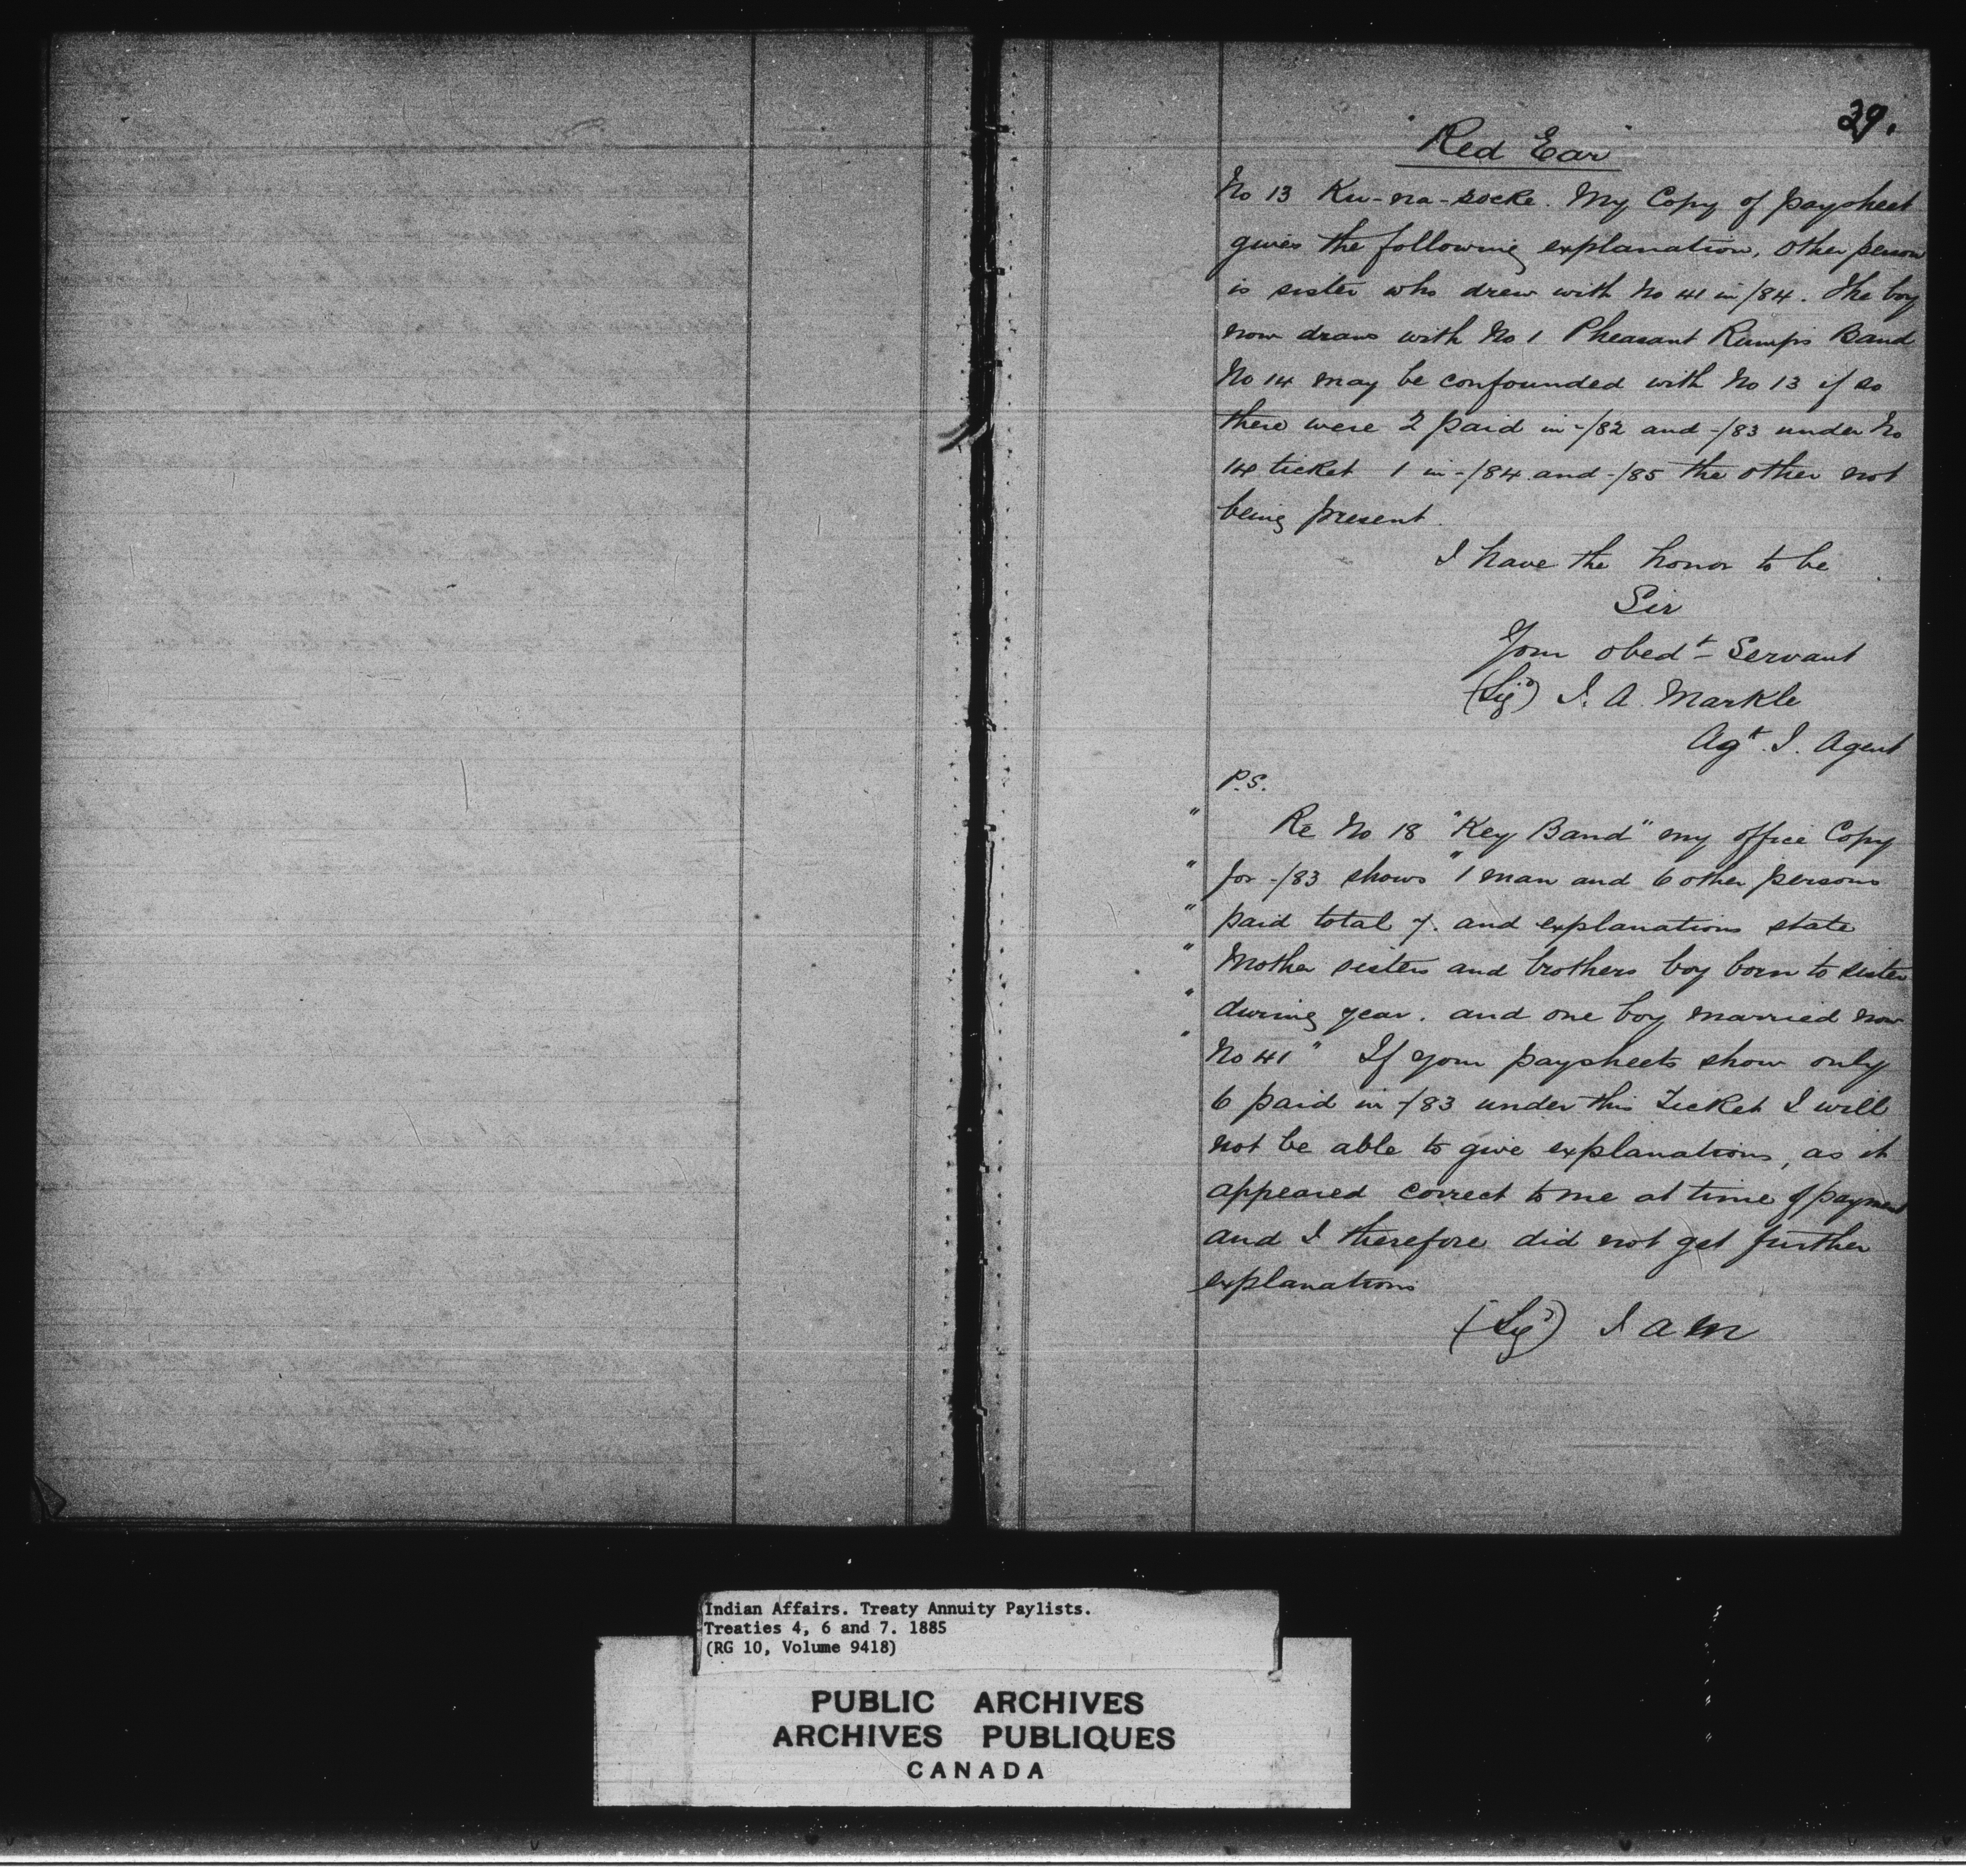 39.
"Red Ear"
No 13 Ku-na-socke. My Copy of paysheet
gives the following explanation, other person
is sister who drew with No 41 in /84. The boy
now draws with No 1 Pheasant Rump's Band
No 14 may be confounded with No 13 if so
there were 2 paid in -/82 and -/83 under No
14 ticket 1 in -/84 and -/85 the other not
being present.
I have the honor to be
Sir
Your obedt Servant
(Sigd) J. A. Markle
Agt. I. Agent
P.S.
" Re No 18 "Key Band" my office Copy
" for -/83 shows "1 man and 6 other persons
" paid total 7. and explanations state
" Mother sisters and brothers boy born to sister
" during year. and one boy married now
" No 41" If your paysheets show only
6 paid in -/83 under this Ticket I will
not be able to give explanations, as it
appeared correct to me at time of payment
and I therefore did not get further
explanations
(Sigd) J A M
Indian Affairs. Treaty Annuity Paylists.
Treaties 4, 6 and 7. 1885
(RG 10, Volume 9418)
PUBLIC ARCHIVES
ARCHIVES PUBLIQUES
CANADA